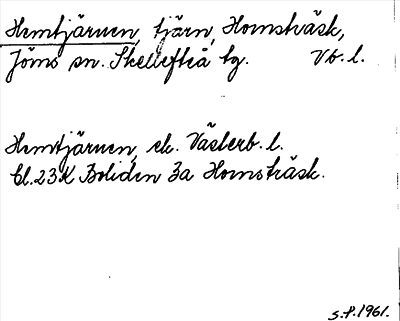 Hemtjärnen, tjärn, Hornsträsk,
Jörns sn. Skellefteå tg. Vb. l.
Hemtjärnen, ek. Västerb. l.
Bl. 23K Boliden 3a Hornsträsk.
S.P. 1961.